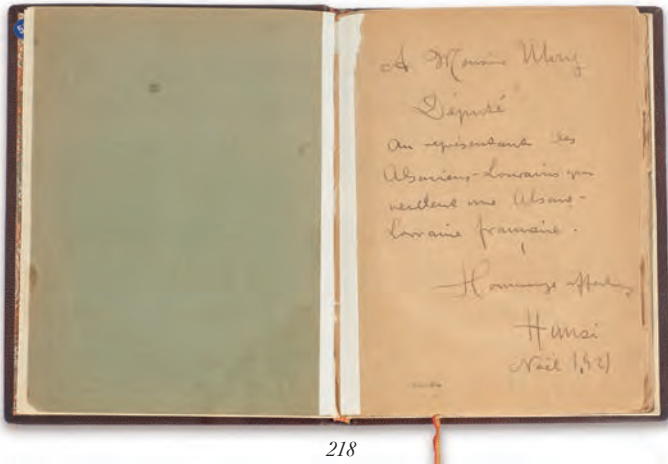 A Monsieur
Député
au représentant des
Alsaciens-Lorrains qui
veulent une Alsace-
Lorraine française.
Hommage
Hansi
Noël 1921
218